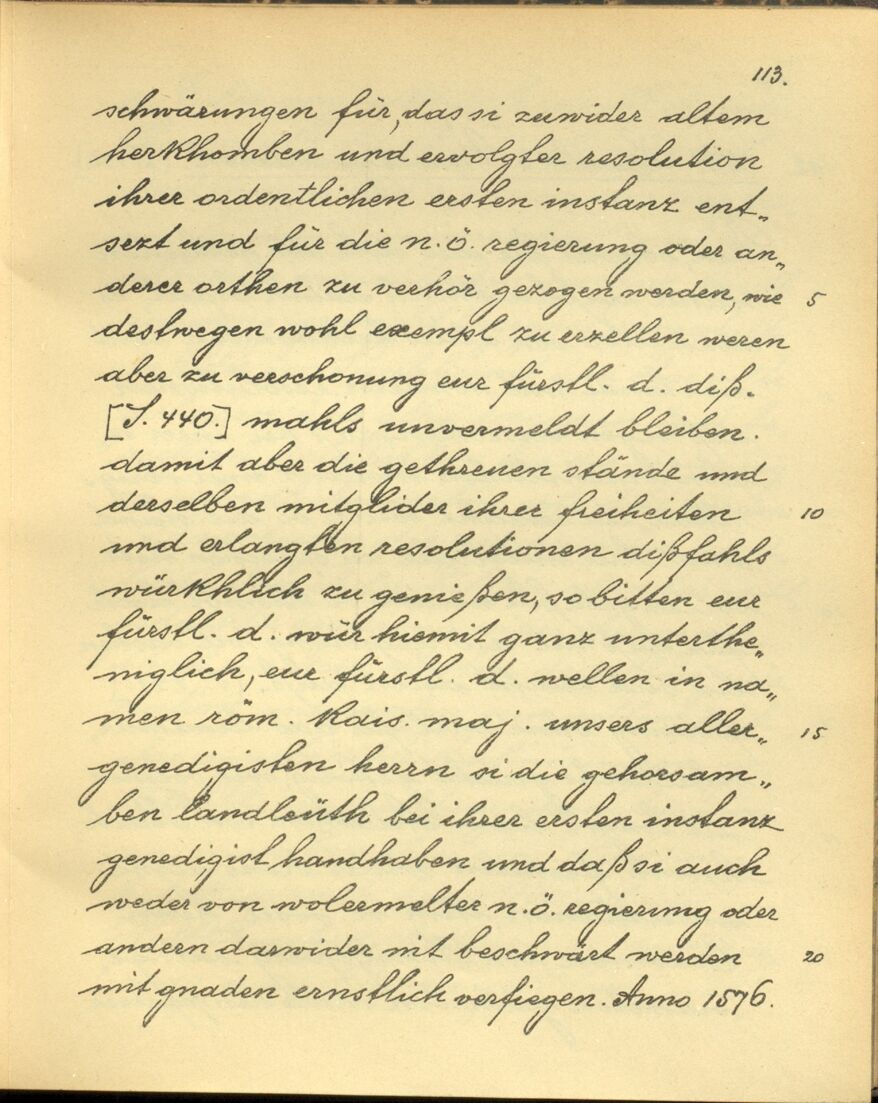 113.
schwärungen für, das si zuwider altem
herkhomben und ervolgter resolution
ihrer ordentlichen ersten instanz ent„
sezt und für die n. ö. regierung oder an„
derer orthen zu verhör gezogen werden, wie 5
destwegen wohl exempl zu erzellen weren
aber zu verschonung eur fürstl. d. diß„
[S. 440.] mahls unvermeldt bleiben.
damit aber die gethreuen stände und
derselben mitglider ihrer freiheiten 10
und erlangten resolutionen dißfahls
würkhlich zu genießen, so bitten eur
fürstl. d. wür hiemit ganz unterthe„
niglich, eur fürstl. d. wellen in na„
men röm. kais. maj. unsers aller„ 15
genedigisten herrn si die gehorsam„
ben landleüth bei ihrer ersten instanz
genedigist handhaben und daß si auch
weder von wolermelter n. ö. regierung oder
andern darwider nit beschwärt werden 20
mit gnaden ernstlich verfiegen. Anno 1576.